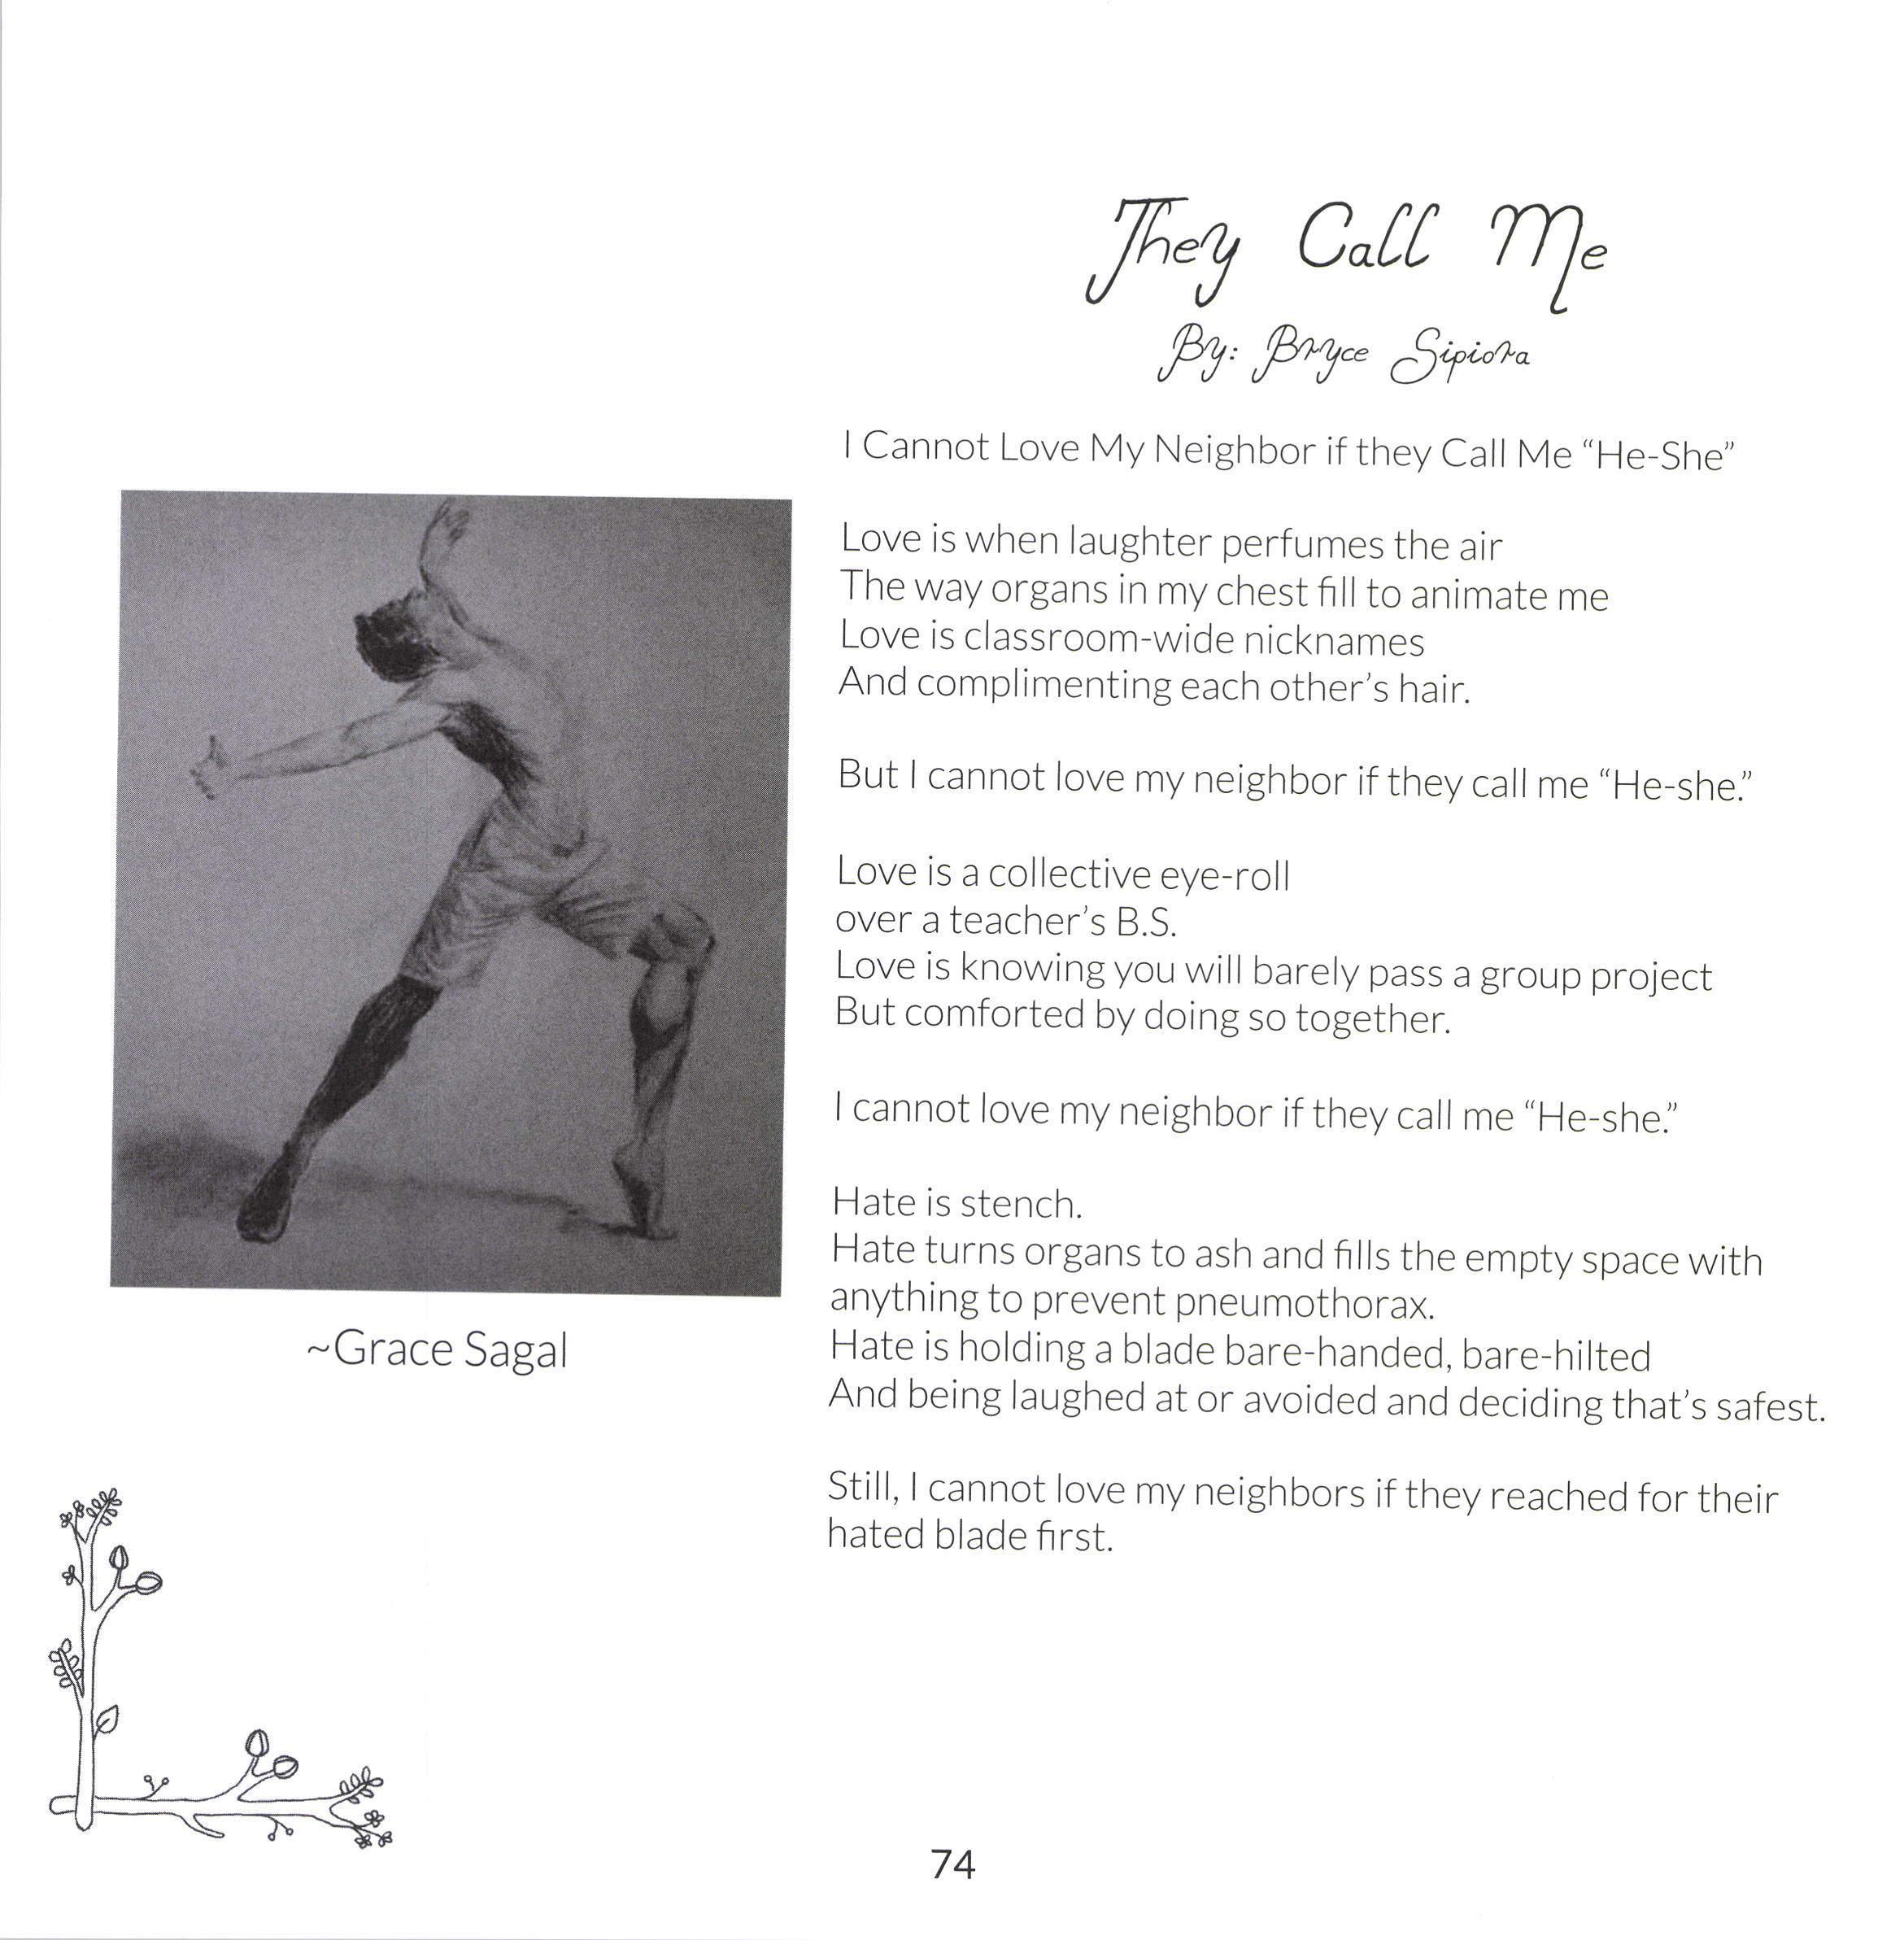 They Call Me
By: Bryce Sipiora
I Cannot Love My Neighbor if they Call Me “He-She”
Love is when laughter perfumes the air
The way organs in my chest fill to animate me
Love is classroom-wide nicknames
And complimenting each other’s hair.
But I cannot love my neighbor if they call me “He-she.”
Love is a collective eye-roll
over a teacher’s B.S.
Love is knowing you will barely pass a group project
But comforted by doing so together.
I cannot love my neighbor if they call me “He-she.”
Hate is stench.
Hate turns organs to ash and fills the empty space with
anything to prevent pneumothorax.
Hate is holding a blade bare-handed, bare-hilted
And being laughed at or avoided and deciding that’s safest.
Still, I cannot love my neighbors if they reached for their
hated blade first.
~Grace Sagal
74